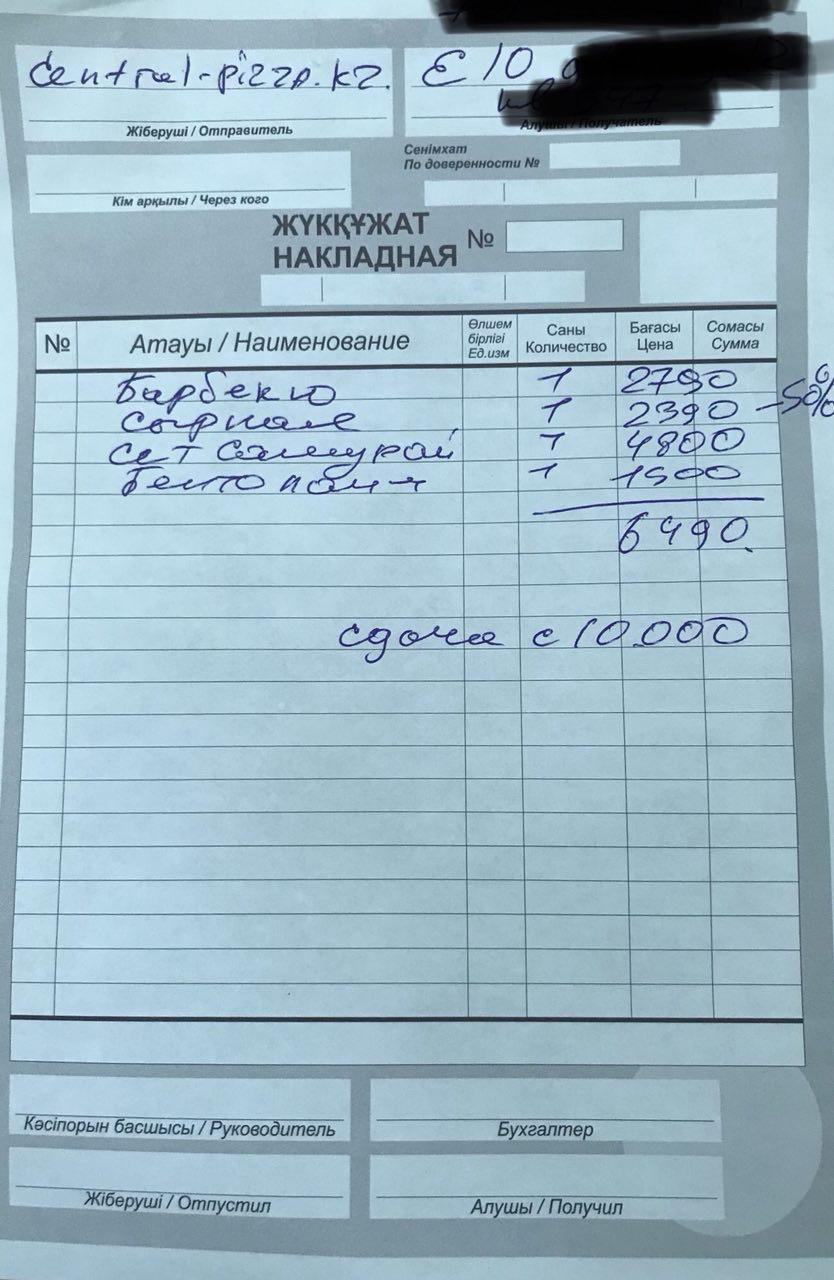 Central-pizza.kz.
Е 10
Жіберуші / Отправитель
Алушы / Получатель
Сенімхат
По доверенности №
Кім арқылы / Через кого
ЖҮКҚҰЖАТ
НАКЛАДНАЯ №
№ Атауы / Наименование Өлшем бірлігі Ед.изм Саны Количество Бағасы Цена Сомасы Сумма
Барбекю 1 2790
Сырная 1 2390 -50%
Сет Самурай 1 4800
Бенто 1 1500
6490.
сдача с 10.000
Кәсіпорын басшысы / Руководитель
Бухгалтер
Жіберуші / Отпустил
Алушы / Получил